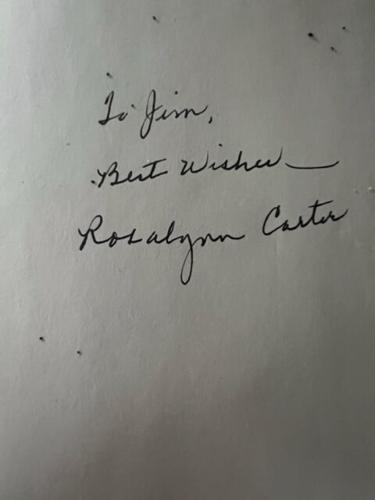 To Jim,
Best Wishes
Rosalynn Carter